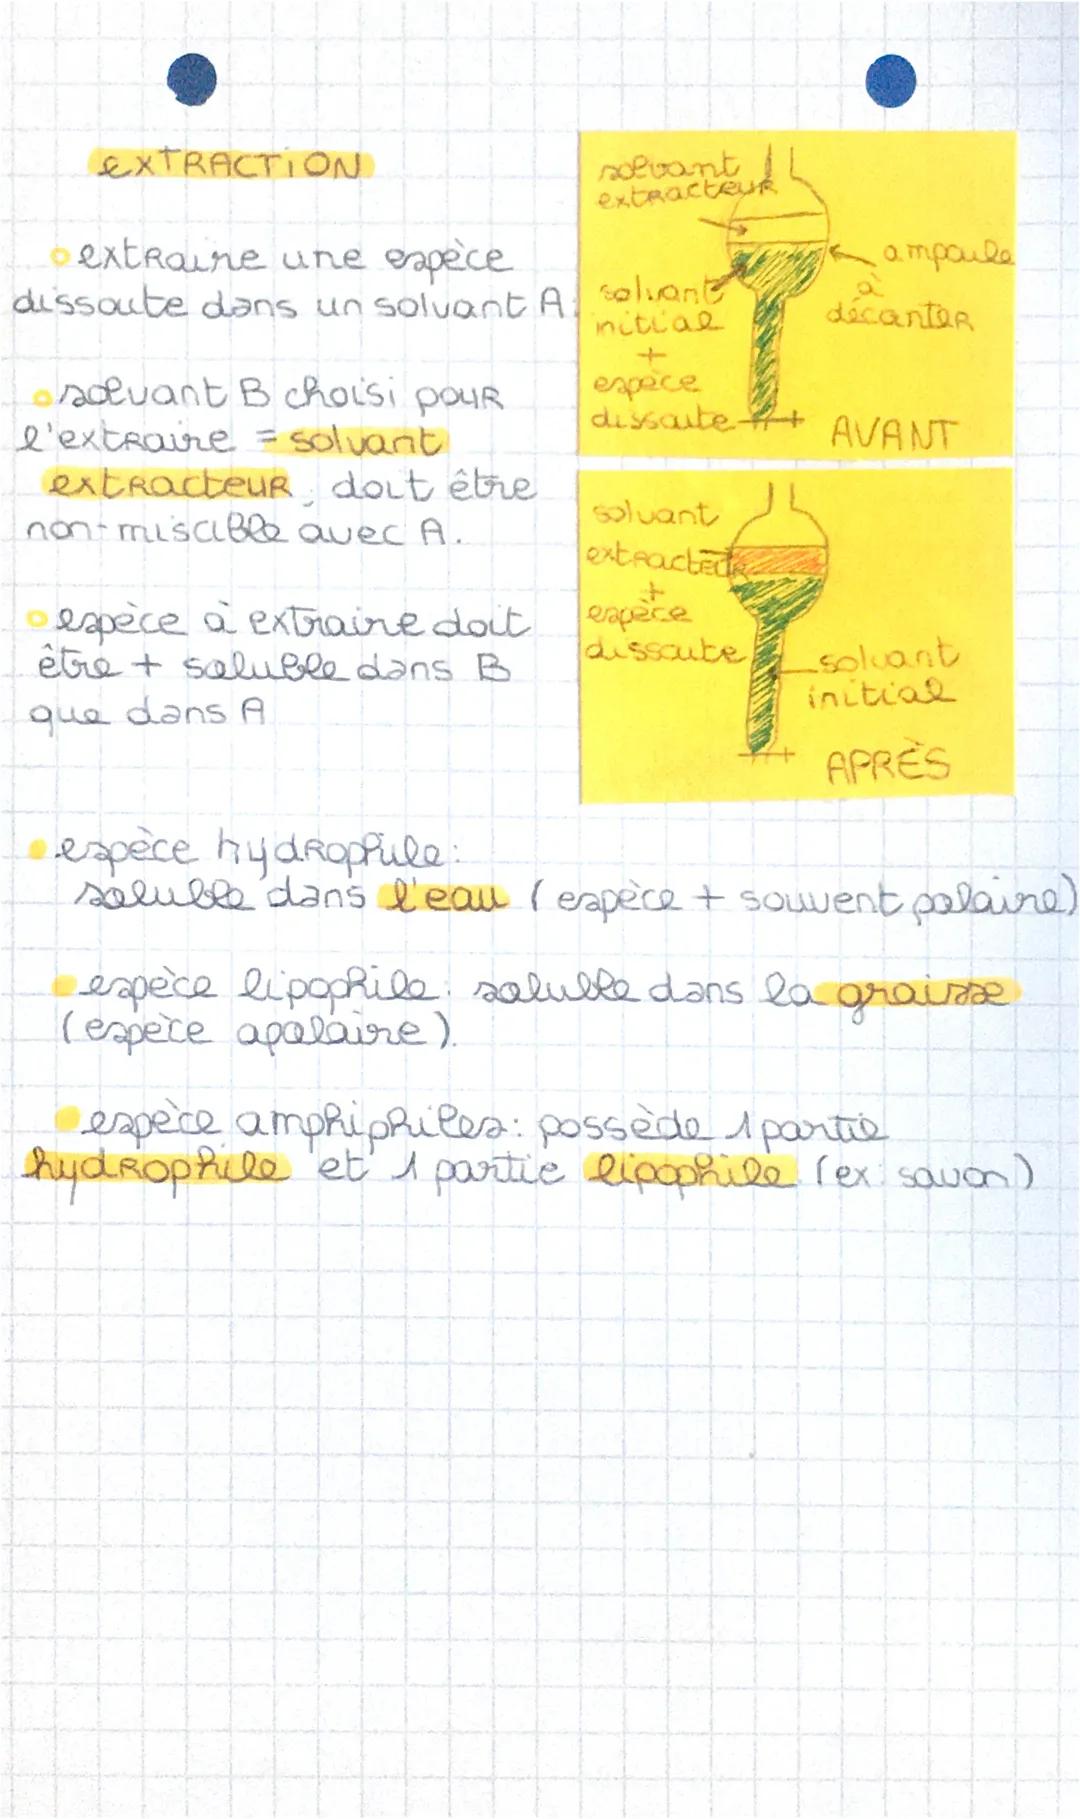 EXTRACTION
extraire une espèce
dissoute dans un solvant A.
solvant B choisi pour
l'extraire = solvant
extracteur, doit être
non-miscible avec A.
espèce à extraire doit
être + soluble dans B
que dans A
solvant
extracteur
ampoule
à
décanter
solvant
initial
+
espèce
dissoute
AVANT
solvant
extracteur
+
espèce
dissoute
solvant
initial
APRÈS
espèce hydrophile:
soluble dans l'eau (espèce + souvent polaire)
espèce lipophile: soluble dans la graisse
(espèce apolaire).
espèce amphiphiles: possède 1 partie
hydrophile et 1 partie lipophile (ex: savon)